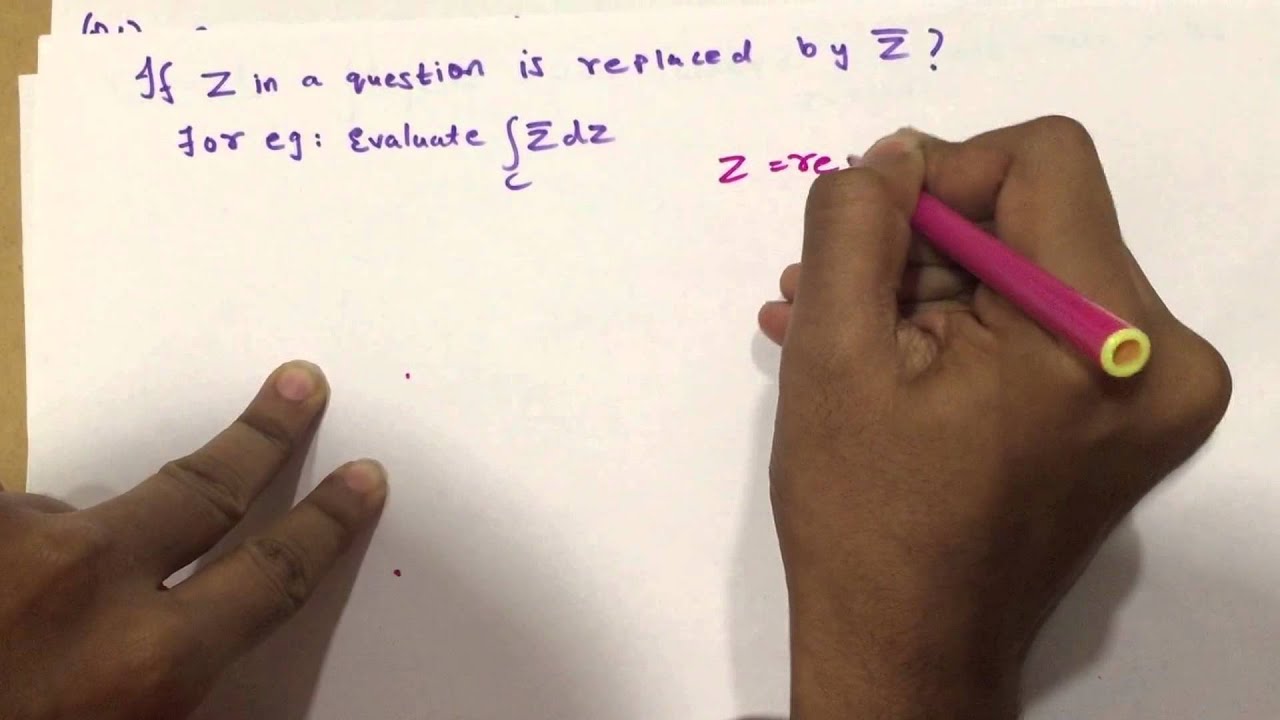 If Z in a question is replaced by z̅ ?
For eg: Evaluate ∫_C z̅ dz
Z = re